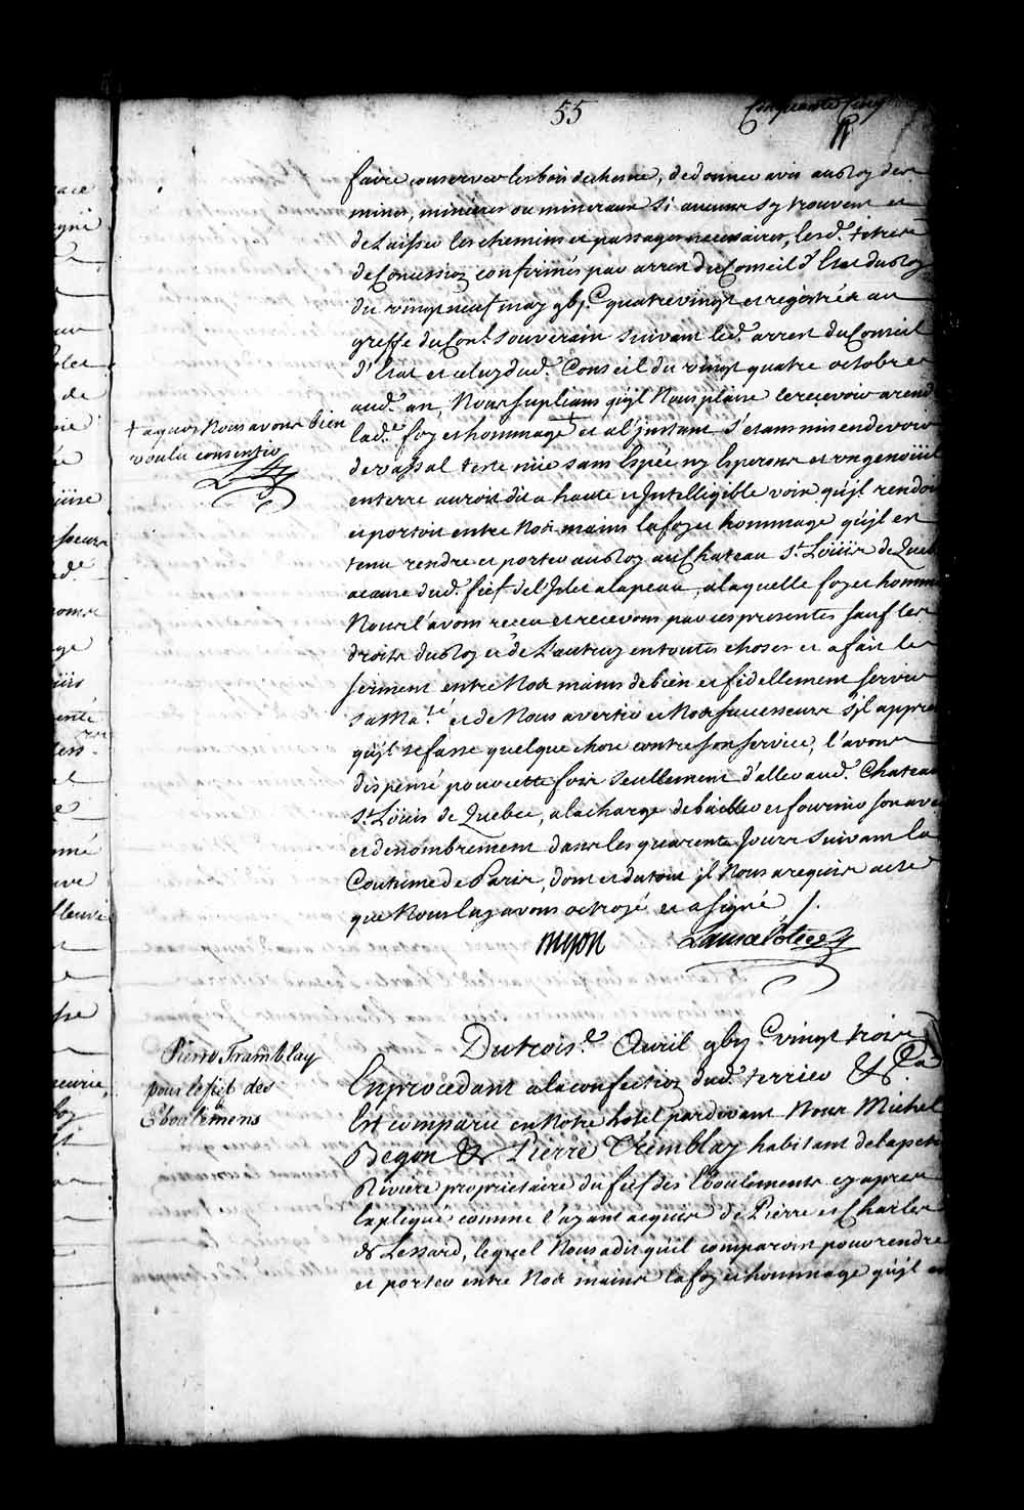 55
Cinquante Cinq
faire conserver les bois de chesne, de donner avis au Roy des
mines, minieres ou mineraux si aucuns s'y trouvent et
de Laisser les chemins et passages necessaires, lesd. titres
de Concession confirmés par arrest du Conseil d'Etat du Roy
du vingt neuf may gbj.c quatre vingt et registrés au
greffe du Con.l souverain suivant led. arrest du Conseil
d'Etat et celuy dud. Conseil du vingt quatre octobre
aud. an, Nous supliant qu'jl Nous plaise le recevoir a rend
lad.e foy et hommage + et a l'jnstant s'étant mis en devoir
+ a quoy Nous avons bien
voulu consentir
de vassal teste nüe sans Espée ny Esperons et un genoüil
en terre auroit dit a haute et Jntelligible voix qu'jl rendoit
et portoit entre Nos mains la foy et hommage qu'jl est
tenu rendre et porter au Roy au Chateau S.t Loüis de Queb
acause dud. fief de l'Jslet alapeau, a laquelle foy et homm
Nous l'avons receu et recevons par ces presentes sauf les
droits du Roy et de L'autruy en toutes choses et a fait le
serment entre Nos mains de bien et fidellement servir
sa Ma.té et de Nous avertir et Nos successeurs s'jl appre
qu'jl se fasse quelque chose contre son service, l'avons
dispensé pour cette fois seullement d'aller aud. Chateau
S.t Loüis de Quebec, a la charge de bailler et fournir son av
et denombrement dans les quarente Jours suivant la
Coutume de Paris, dont et du tout jl Nous a requis acte
que Nous luy avons octroyé et a signé /.
Du trois.e Avril gbij.c vingt trois
Pierre Tramblay
pour le fief des
Eboulemens
En procedant a la confection dud. terrier &.ca
Est comparu en Notre hotel pardevant Nous Michel
Begon &.a Pierre Tremblay habitant de la petite
Riviere proprietaire du fief des Eboulements cy apres
Expliqué comme l'ayant acquis de Pierre et Charles
de Lessard, lequel Nous a dit qu'il comparoit pour rendre
et porter entre Nos mains la foy et hommage qu'jl